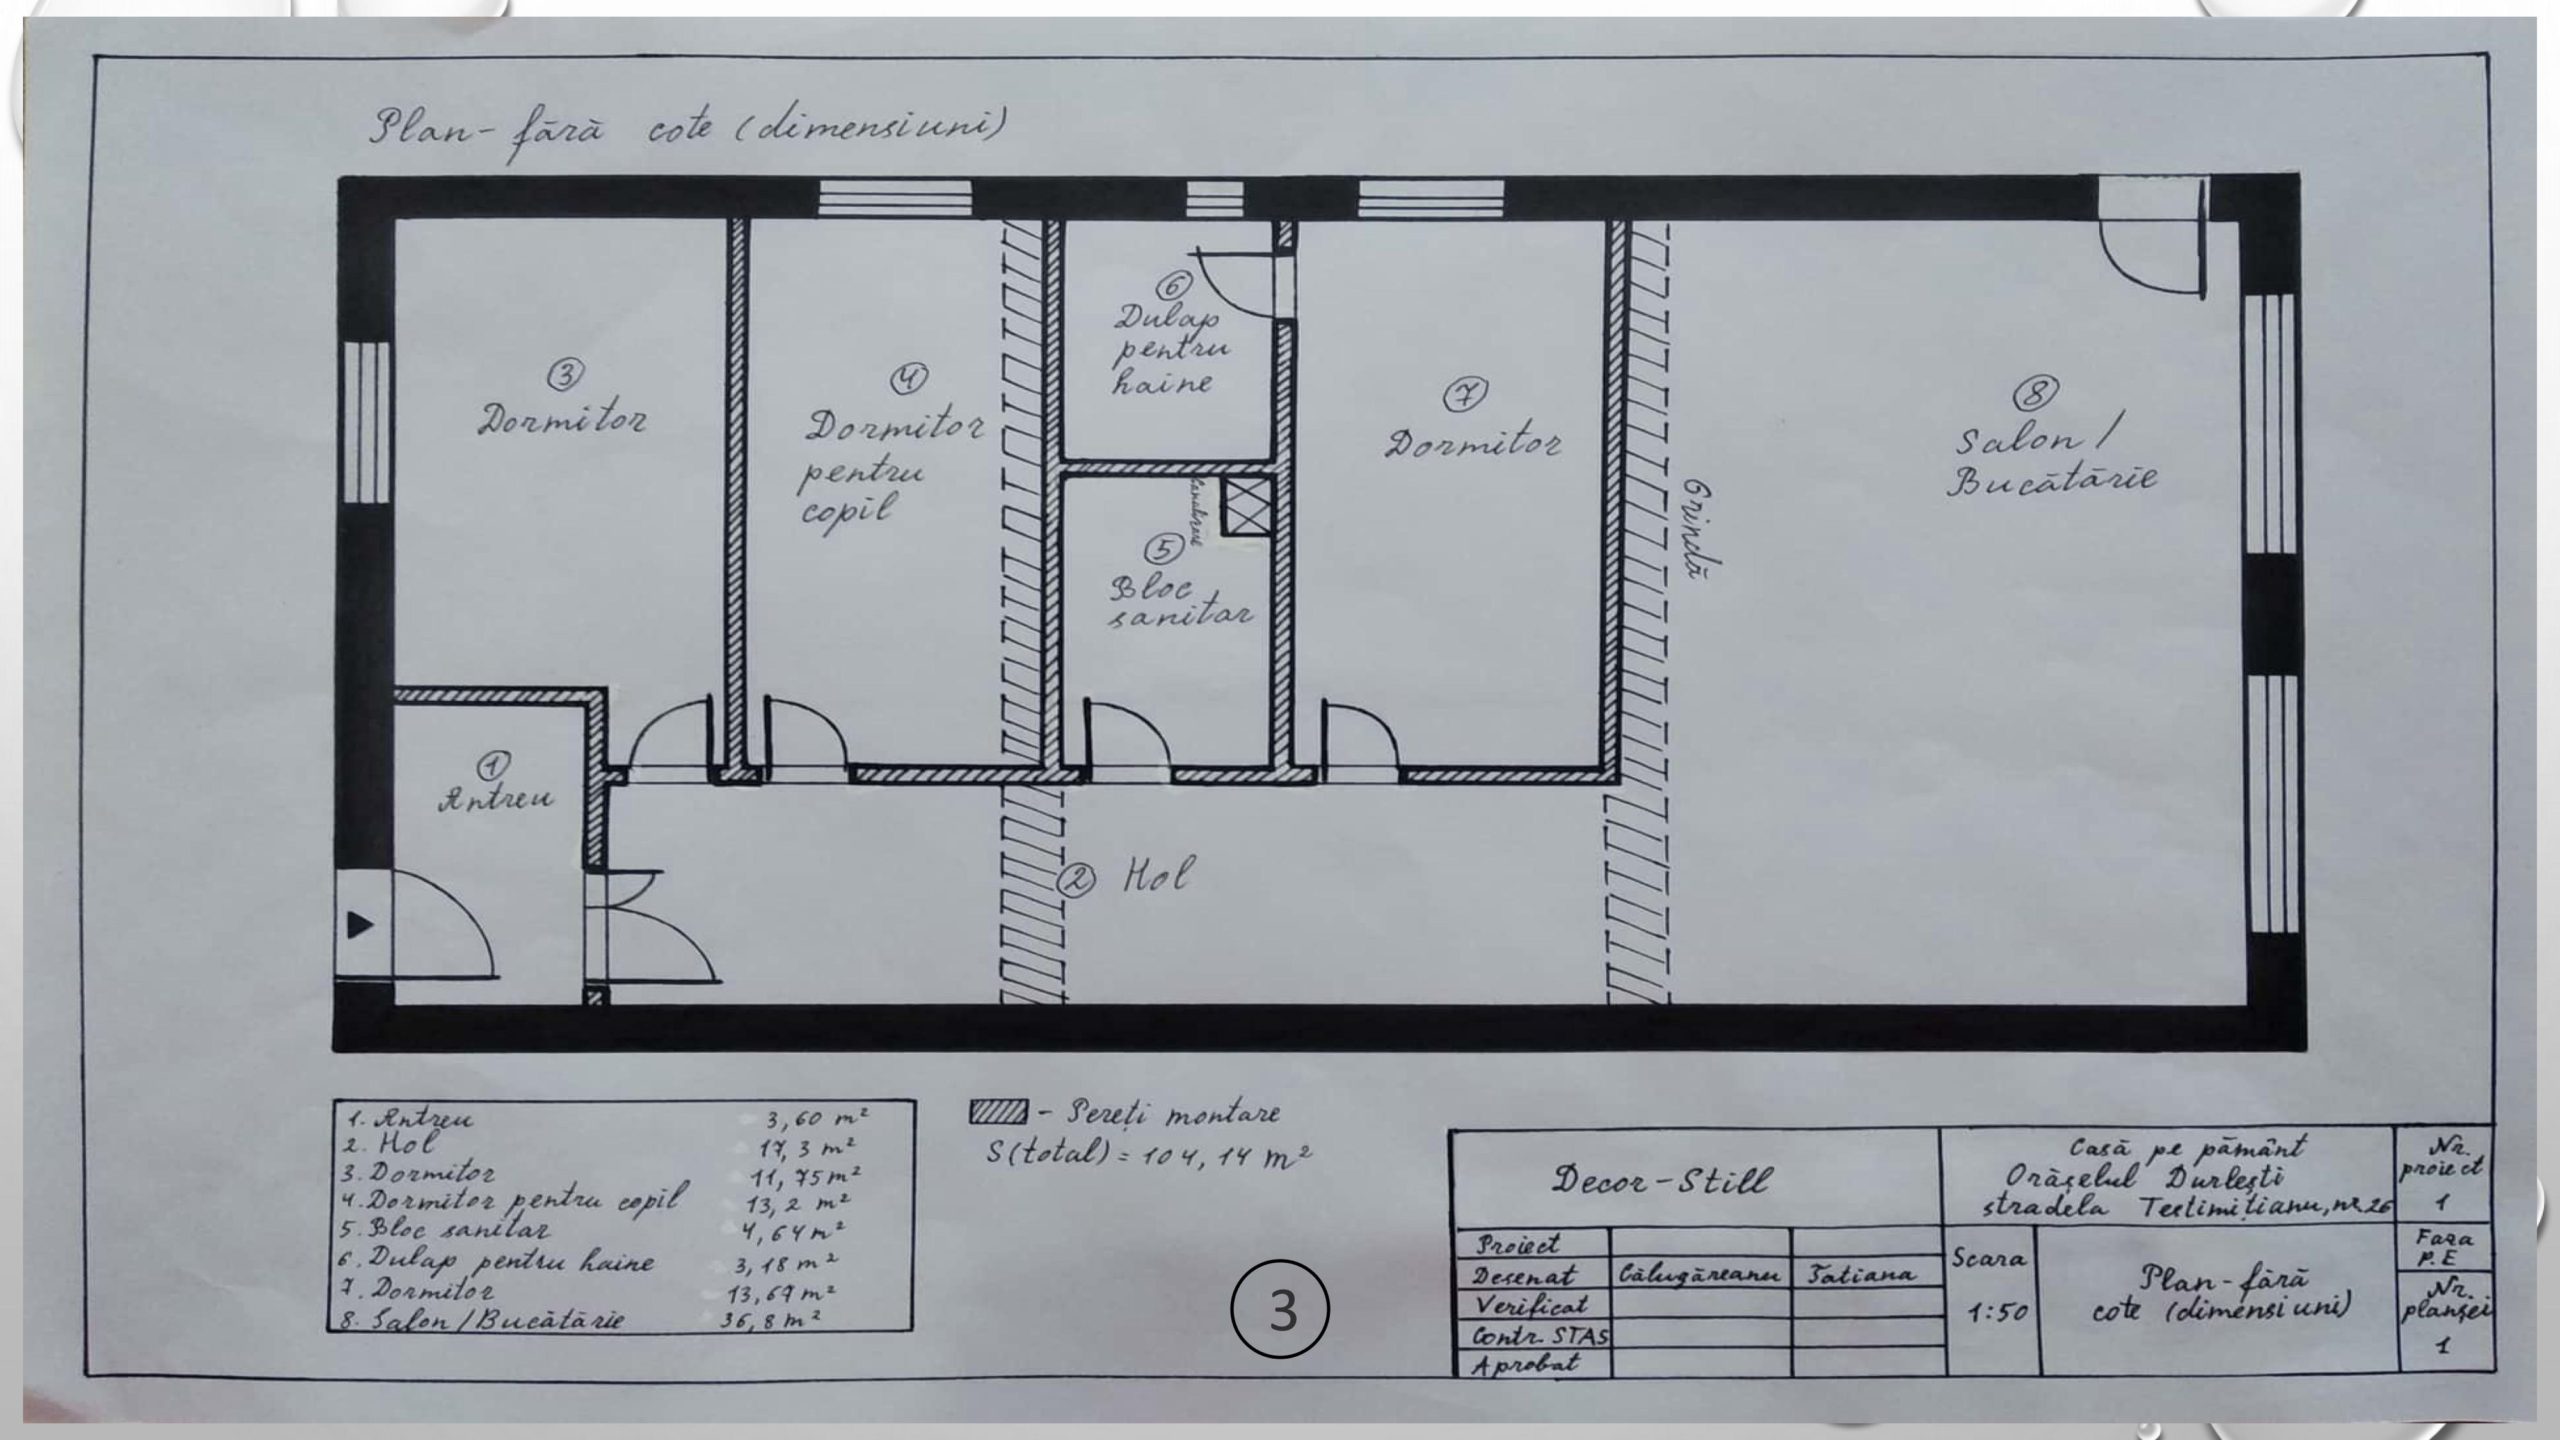 Plan-fără cote (dimensiuni)
③
Dormitor
④
Dormitor
pentru
copil
⑥
Dulap
pentru
haine
⑦
Dormitor
⑧
Salon /
Bucătărie
Grindă
⑤
Bloc
sanitar
①
Antreu
② Hol
1. Antreu 3,60 m²
2. Hol 17,3 m²
3. Dormitor 11,75 m²
4. Dormitor pentru copil 13,2 m²
5. Bloc sanitar 4,64 m²
6. Dulap pentru haine 3,18 m²
7. Dormitor 13,67 m²
8. Salon /Bucătărie 36,8 m²
- Pereți montare
S(total) = 104,14 m²
3
Decor-Still
Casă pe pământ
Orășelul Durlești
stradela Testimițianu, nr. 26
Nr.
proiect
1
Proiect
Desenat Călugăreanu Tatiana
Verificat
Contr. STAS
Aprobat
Scara
1:50
Plan-fără
cote (dimensiuni)
Faza
P.E
Nr.
planșei
1